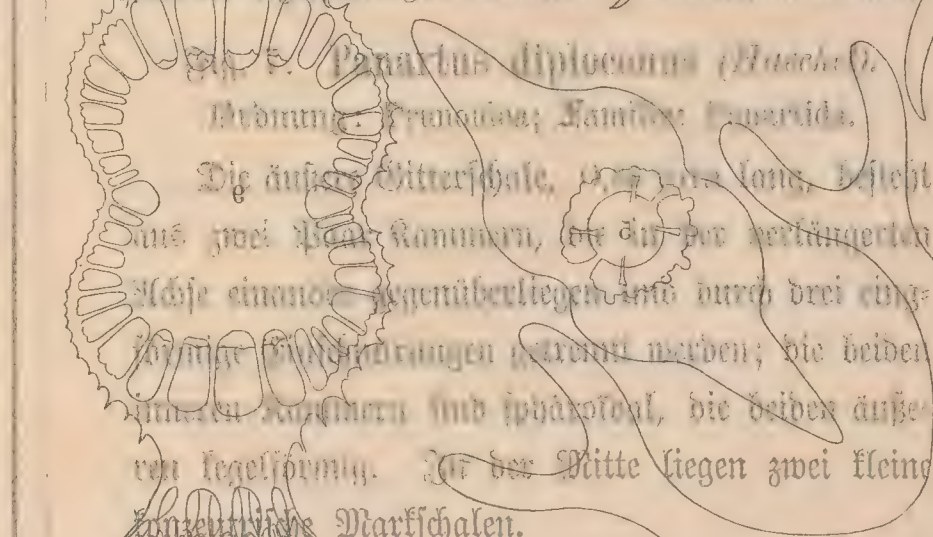 Fig. Panartus diploconus (Haeckel).
Ordnung: Prunoidea; Familie: Panartida.
Die äußere Gitterschale, lang, besteht
aus zwei Paar Kammern, die in der verlängerten
Achse einander gegenüberliegen und durch drei
getrennt werden; die beiden
inneren Kammern sind sphäroidal, die beiden äuße-
ren kegelförmig. In der Mitte liegen zwei kleine
konzentrische Markschalen.
e
d